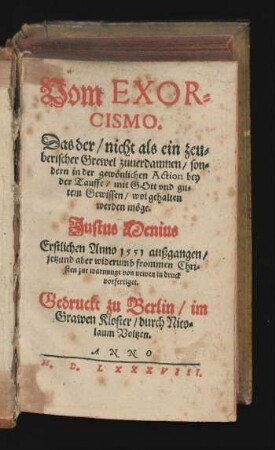 Vom EXOR-
CISMO.
Das der / nicht als ein zeu-
berischer Grewel zuuerdammen / son-
dern in der gewönlichen Action bey
der Tauffe / mit Gott vnd gu-
tem Gewissen / wol gehalten
werden möge.
Justus Menius
Erstlichen Anno 1551 außgangen /
jetzund aber widerumb frommen Chri-
sten zur warnunge von newen in druck
vorfertiget.
Gedruckt zu Berlin / im
Grawen Kloster / durch Nico-
laum Voltzen.
ANNO
M. D. LXXXVIII.